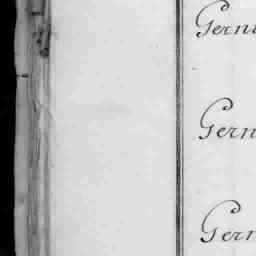 Gerni
Gern
Gern